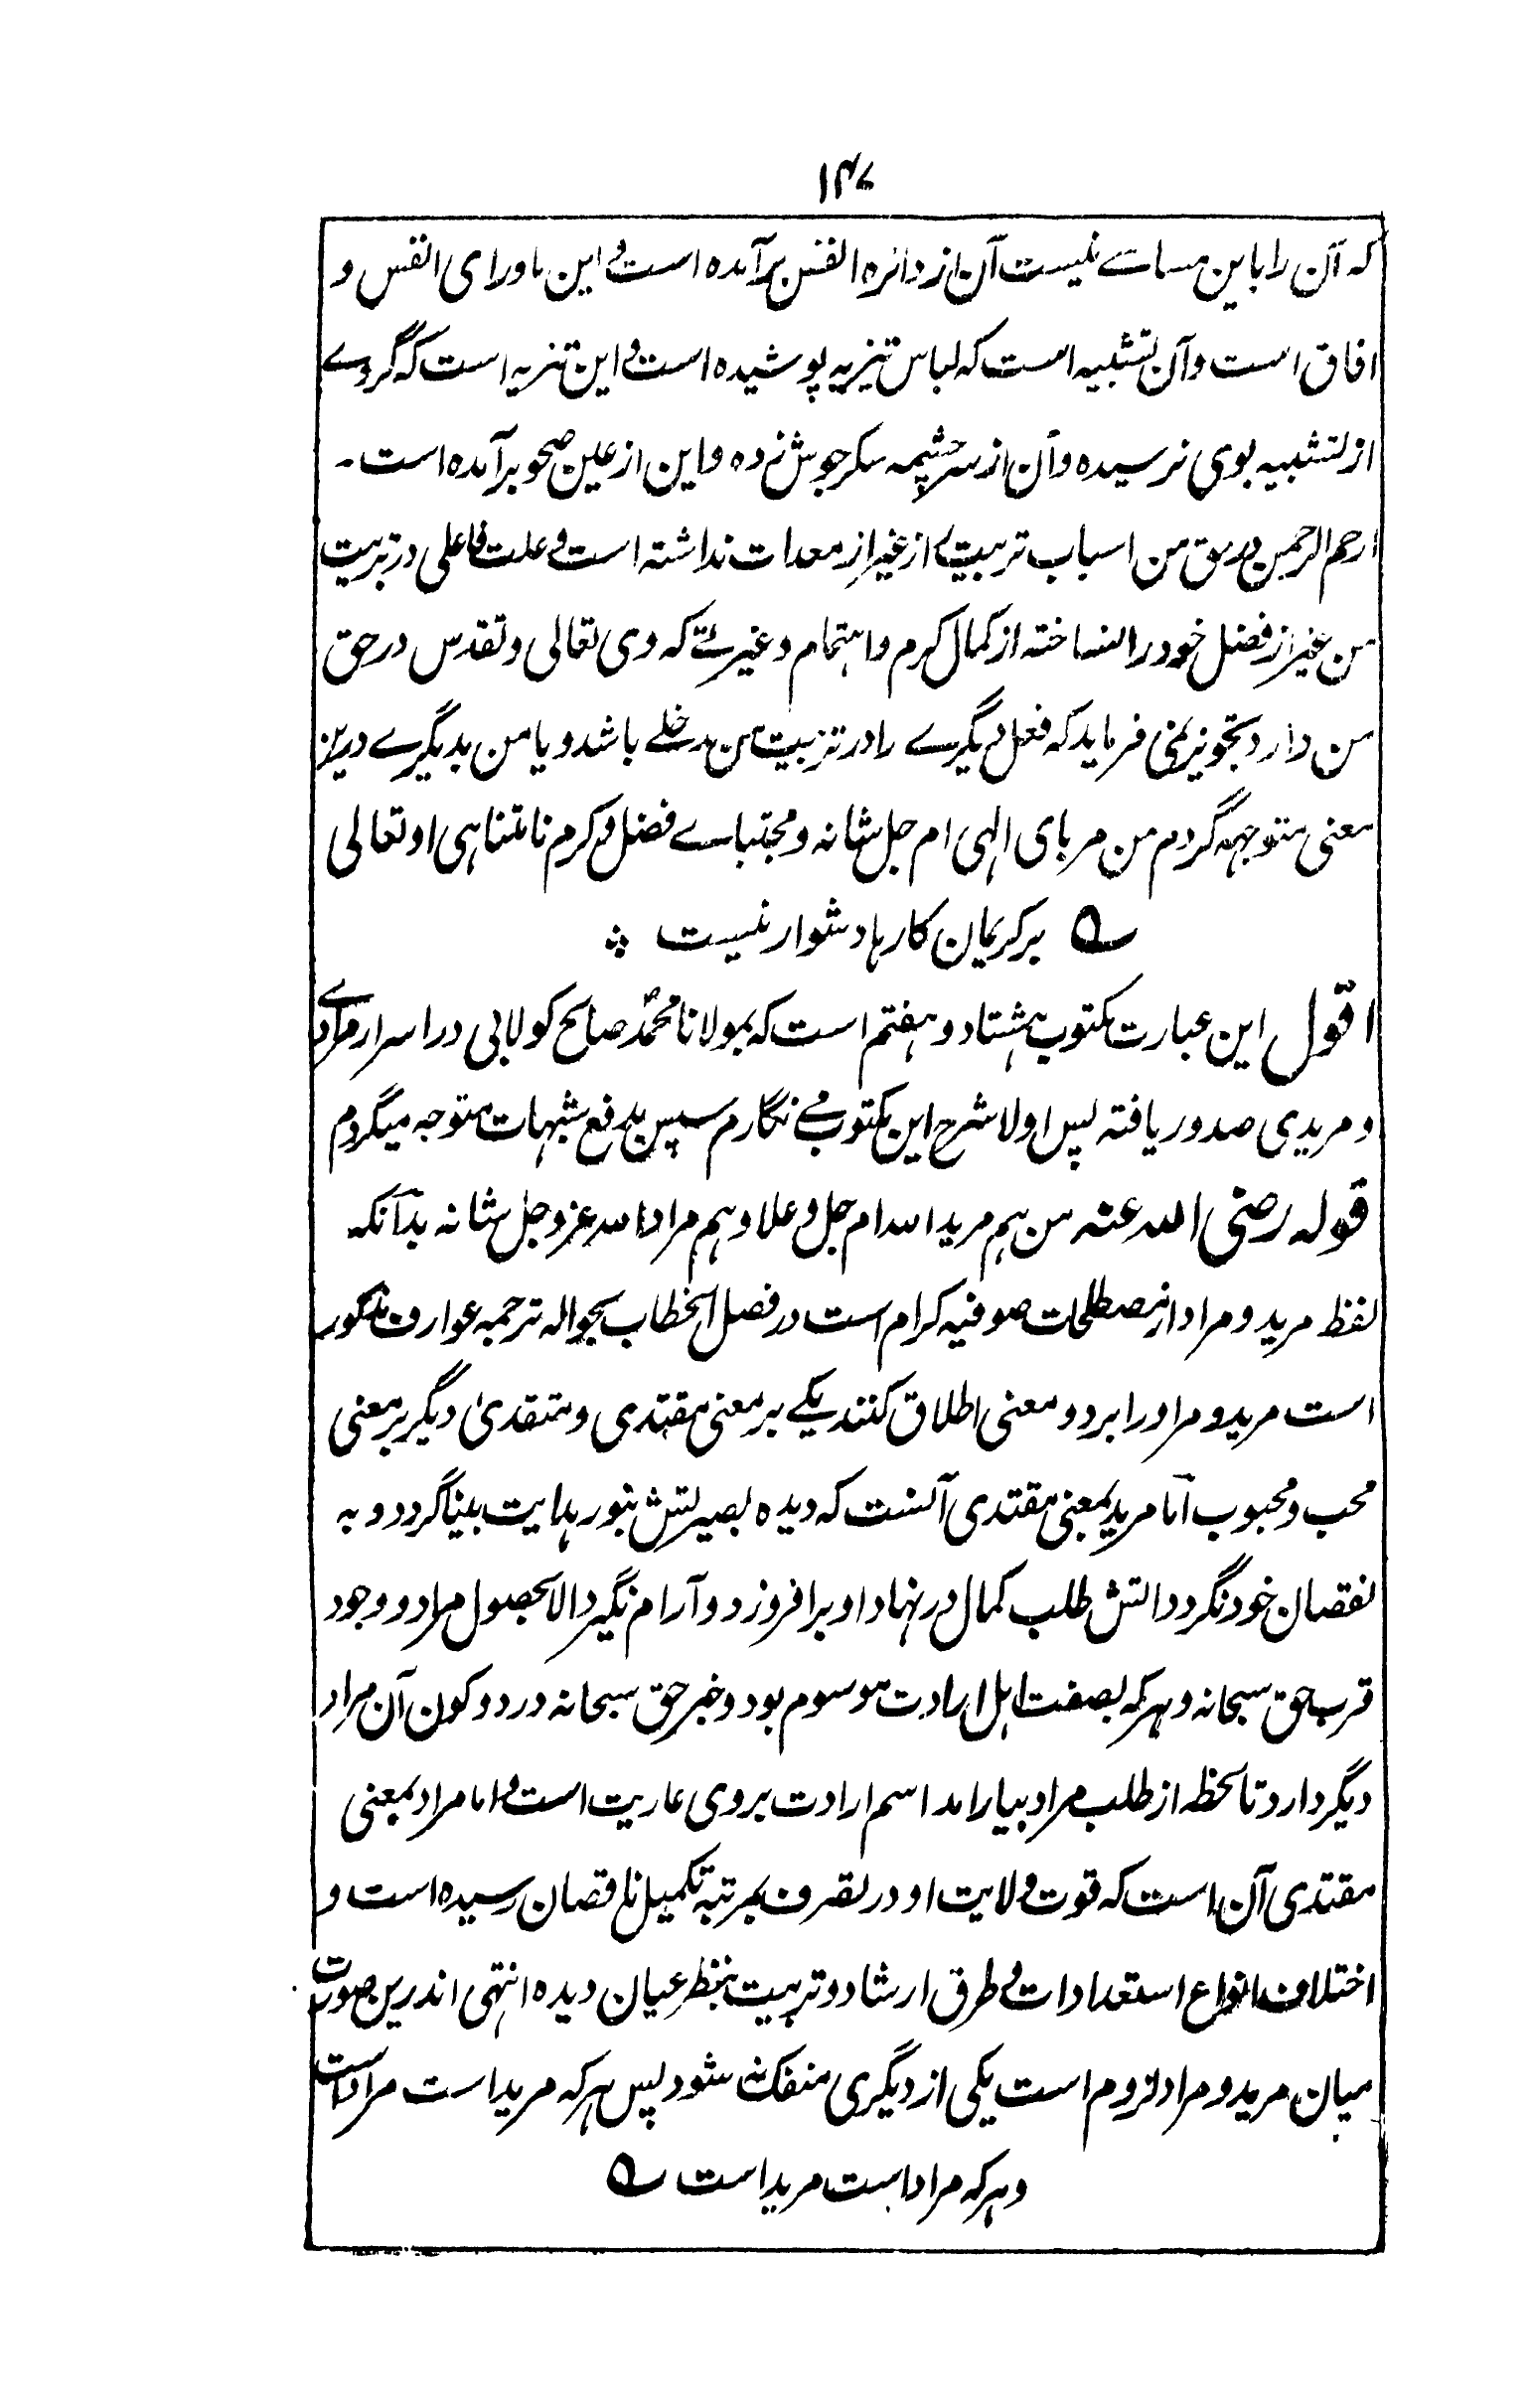 ۱۴۷
که آن را باین مساسے نیست آن از دائره انفس برآمده است و این ماورای انفس و
افاق است و آن تشبیه است که لباس تنزیه پوشیده است و این تنزیه است که گردے
از تشبیه بوی نرسیده و آن از سرچشمه سکر جوش زده و این از عین صحو برآمده است۔
ارحم الرحمین در حق من اسباب تربیت را از غیر از معدات نداشته است و علت فاعلی در تربیت
من غیر از فضل خود را نساخته از کمال کرم و اهتمام و غیرتے که وی تعالی و تقدس در حق
من دارد تجویز نمی فرماید که فعل دیگرے را در تربیت من مدخلے باشد و یا من بدیگرے درین
معنی متوجهه گردم من مربای الهی ام جل شانه و مجتباے فضل و کرم نامتناهی او تعالی
؎ بر کریمان کارها دشوار نیست
اقول این عبارت مکتوب هشتاد و هفتم است که بمولانا محمد صالح کولابی در اسرار مرادے
و مریدی صدور یافته پس اولا شرح این مکتوب مے نگارم سپس بدفع شبهات متوجه میگردم
قوله رضی الله عنه من هم مرید الله ام جل و علا و هم مراد الله عز و جل شانه بدآنکه
لفظ مرید و مراد از مصطلحات صوفیه کرام است در فصل الخطاب بحواله ترجمه عوارف مذکور
است مرید و مراد را بر دو معنی اطلاق کنند یکے بر معنی مقتدی و مقتدیٰ دیگر بر معنی
محب و محبوب اما مرید بمعنی مقتدی آنست که دیده بصیرتش بنور هدایت بینا گردد و به
نقصان خود نگردد آتش طلب کمال در نهاد او برافروزد و آرام نگیرد الا بحصول مراد و وجود
قرب حق سبحانه و هرکه بصفت اهل ارادت موسوم بود و جز حق سبحانه در دو کون آن مراد
دیگر دارد تا لحظه از طلب مراد بیارامد اسم ارادت بروی عاریت است و اما مراد بمعنی
مقتدی آن است که قوت ولایت او در تصرف بمرتبه تکمیل ناقصان رسیده است و
اختلاف انواع استعدادات و طرق ارشاد و تربیت بنظر عیان دیده انتهی اندرین صورت
میان مرید و مراد لزوم است یکی از دیگری منفک نه شود پس هر که مرید است مراد است
و هر که مراد است مرید است ؎